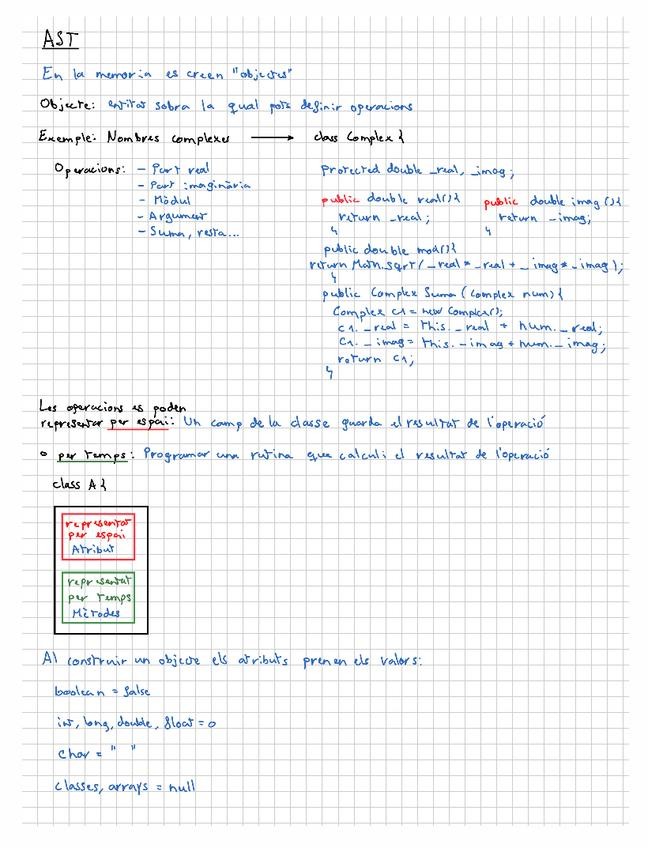 AST
En la memoria es creen "objectes"
Objecte: entitat sobra la qual pots definir operacions
Exemple: Nombres complexes → class Complex {
Operacions: - Part real
- Part imaginària
- Mòdul
- Argument
- Suma, resta...
protected double _real, _imag;
public double real(){
return _real;
}
public double imag(){
return _imag;
}
public double mod(){
return Math.sqrt(_real*_real+_imag*_imag);
}
public Complex Suma(Complex num){
Complex c1 = new Complex();
c1._real = this._real + num._real;
c1._imag = this._imag + num._imag;
return c1;
}
Les operacions es poden
representar per espai: Un camp de la classe guarda el resultat de l'operació
o per temps: Programar una rutina que calculi el resultat de l'operació
class A{
representat
per espai
Atribut
representat
per temps
Mètodes
Al construir un objecte els atributs prenen els valors:
boolean = false
int, long, double, float = 0
char = " "
classes, arrays = null